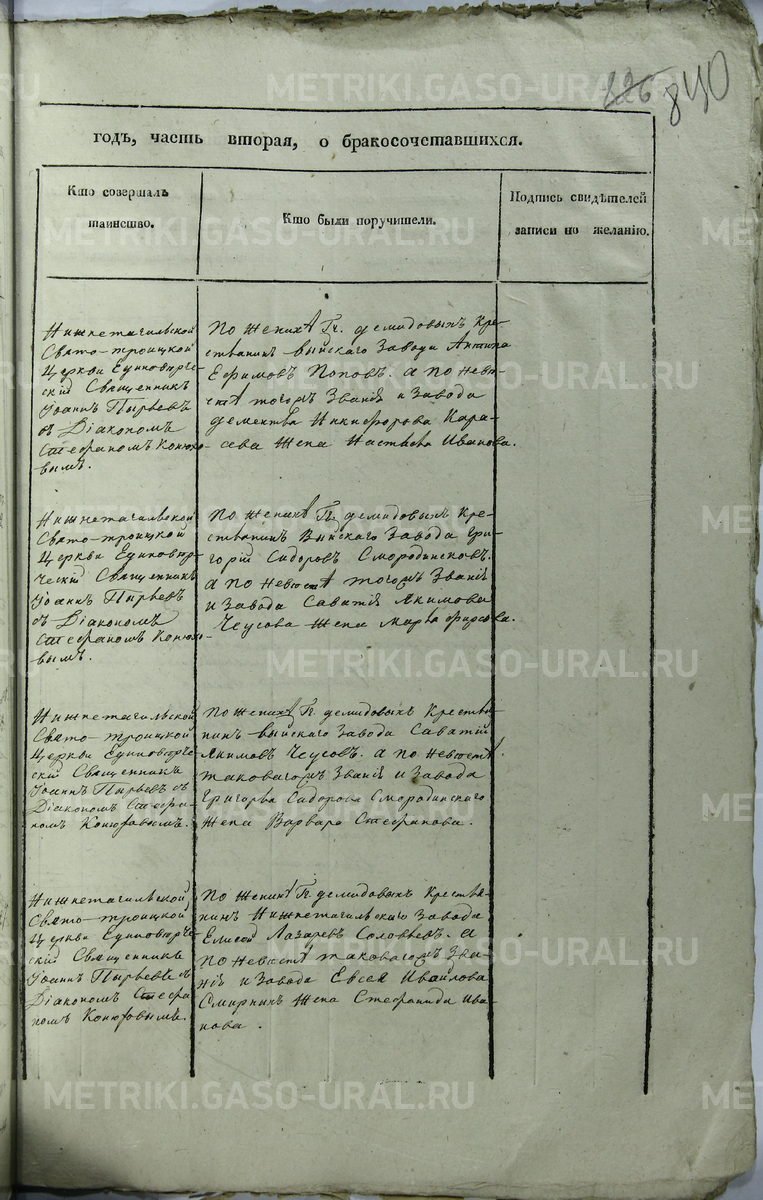 226
840
годъ, часть вторая, о бракосочетавшихся.
Кто совершалъ
таинство.
Кто были поручители.
Подпись свидѣтелей
записи по желанію.
Нижнетагильской
Свято-троицкой
Церкви Единовѣрче-
скій Священникъ
Іоаннъ Пырьевъ
съ Діакономъ
Стефаномъ Конюхо-
вымъ.
По женихѣ Гг. демидовыхъ Кре-
стьянинъ Выйскаго Завода Антипа
Ефимовъ Поповъ. а по невѣ-
стѣ тогожъ Званія и Завода
дементья Никифорова Кара-
сева Жена Настасья Иванова.
Нижнетагильской
Свято-троицкой
Церкви Единовѣр-
ческій Священникъ
Іоаннъ Пырьевъ
съ Діакономъ
Стефаномъ Конюхо-
вымъ.
По женихѣ Гг. демидовыхъ Кре-
стьянинъ Выйскаго Завода Гри-
горій Сидоровъ Смородинсковъ.
а по невѣстѣ тогожъ Званія
и Завода Саватія Якимова
Чеусова Жена Марѳа Фирсова.
Нижнетагильской
Свято-троицкой
Церкви Единовѣрче-
скій Священникъ
Іоаннъ Пырьевъ съ
Діакономъ Стефа-
номъ Конюховымъ.
По женихѣ Гг. демидовыхъ Крестья-
нинъ Выйскаго Завода Саватій
Якимовъ Чеусовъ. а по невѣстѣ
таковагожъ Званія и Завода
Григорья Сидорова Смородинскаго
Жена Варвара Стефанова.
Нижнетагильской
Свято-троицкой
Церкви Единовѣрче-
скій Священникъ
Іоаннъ Пырьевъ съ
Діакономъ Стефа-
номъ Конюховымъ.
По женихѣ Гг. демидовыхъ Крестья-
нинъ Нижнетагильскаго Завода
Елисей Лазаревъ Соловьевъ. а
по невѣстѣ таковагожъ Зва-
нія и Завода Евсея Иванова
Смирнин Жена Стефанида Ива-
нова.
METRIKI.GASO-URAL.RU